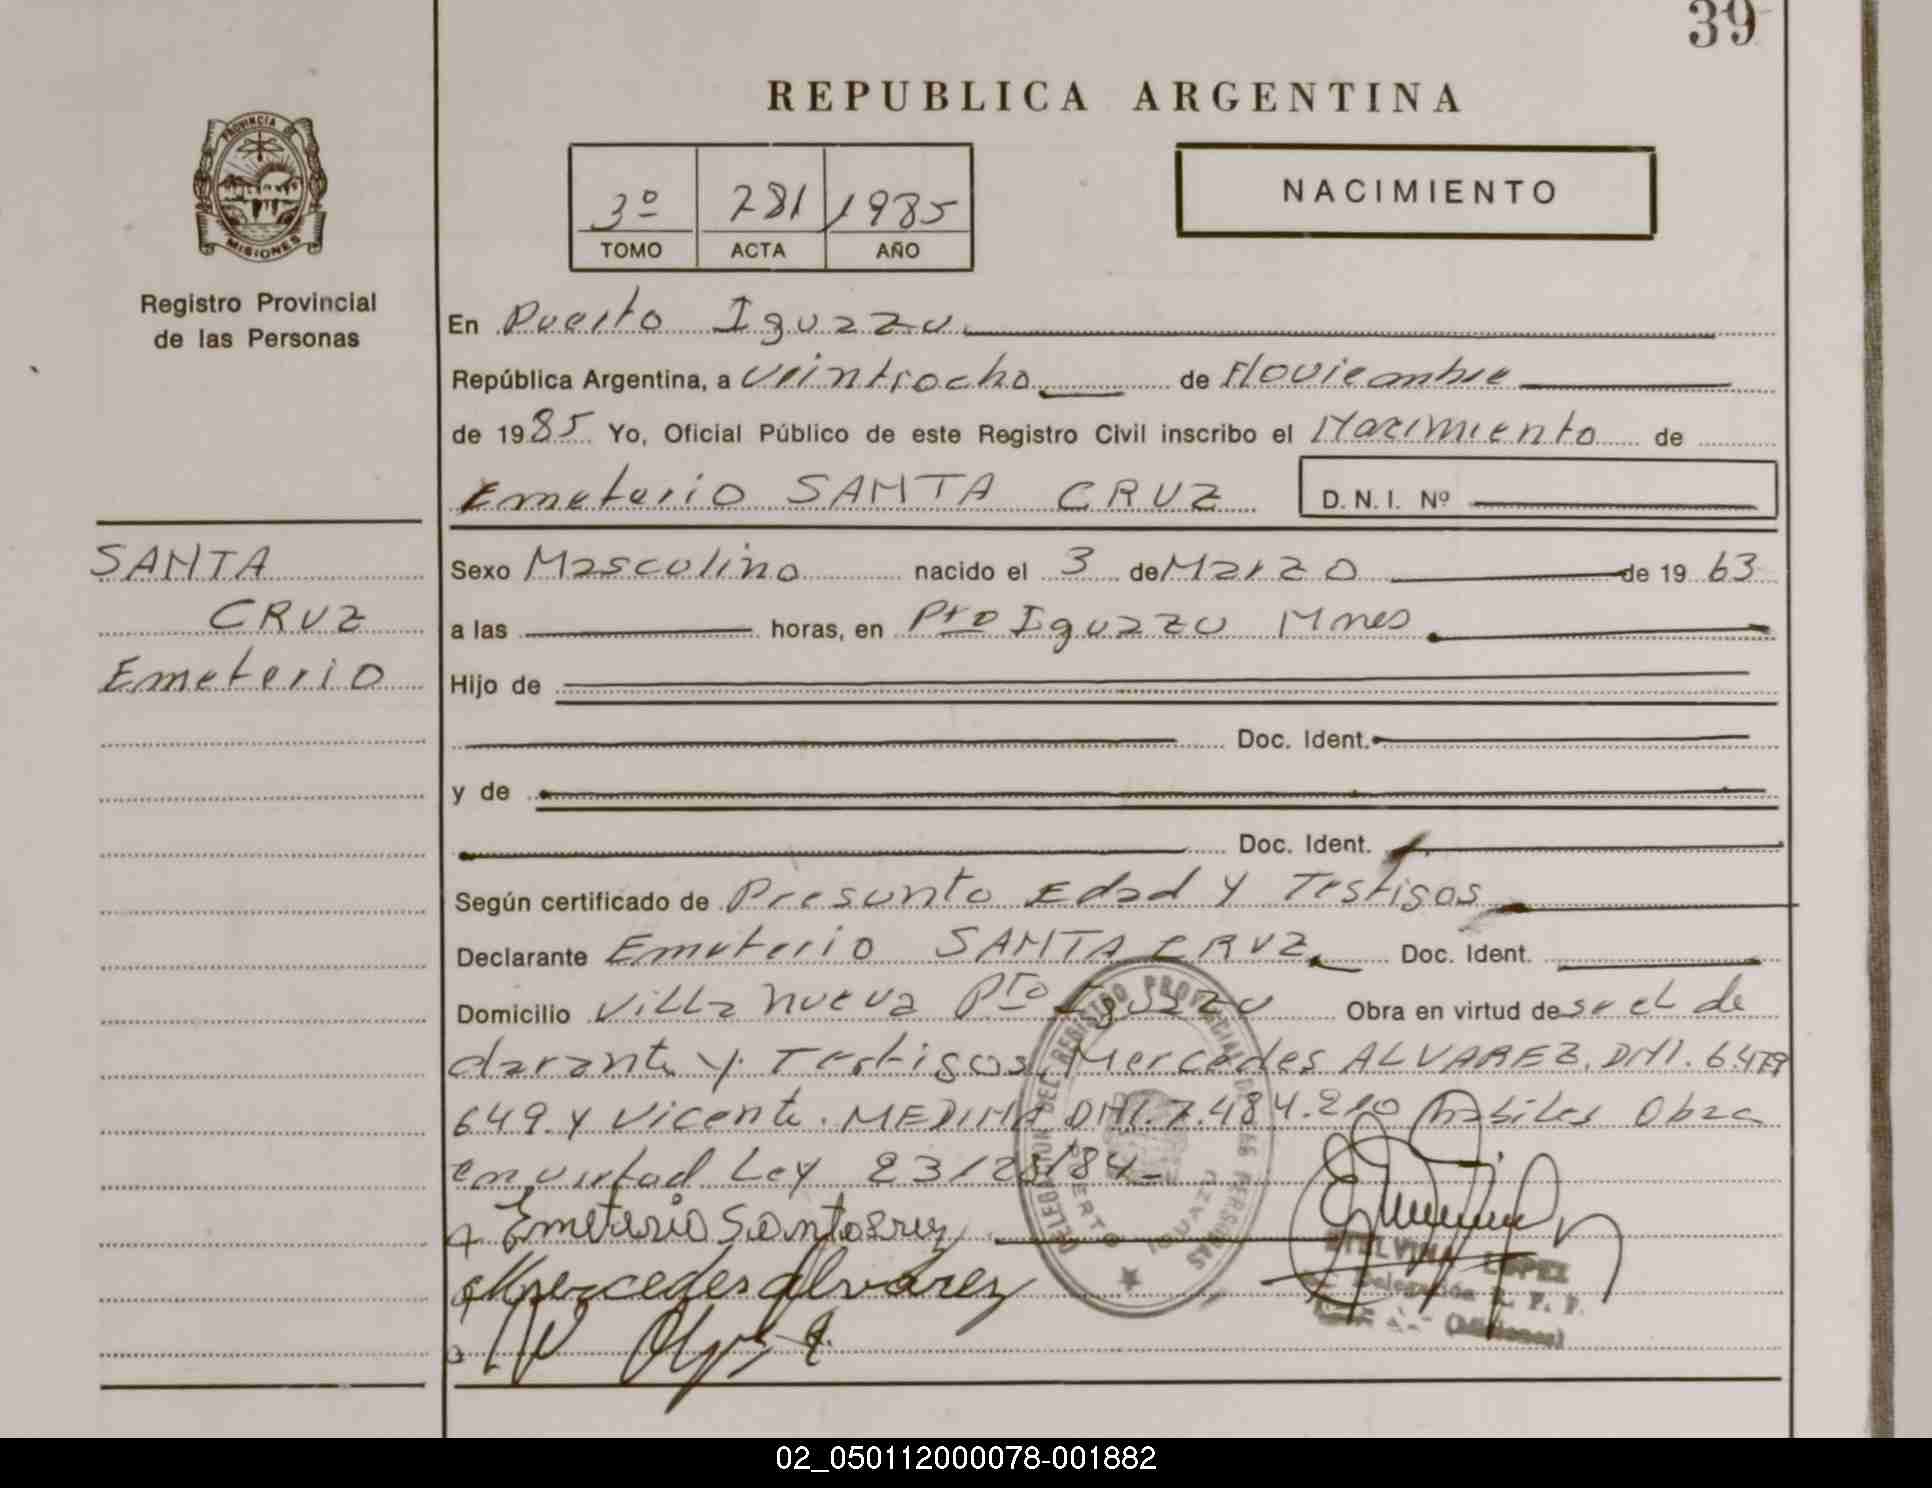 39
REPUBLICA ARGENTINA
PROVINCIA DE
MISIONES
Registro Provincial
de las Personas
3º 281 1985
TOMO ACTA AÑO
NACIMIENTO
En Puerto Iguazu
República Argentina, a veintiocho de Noviembre
de 1985 Yo, Oficial Público de este Registro Civil inscribo el Nacimiento de
Emeterio SANTA CRUZ D. N. I. Nº
SANTA
CRUZ
Emeterio
Sexo Masculino nacido el 3 de Marzo de 1963
a las horas, en Pto Iguazu Mnes
Hijo de
Doc. Ident.
y de
Doc. Ident.
Según certificado de Presunto Edad y Testigos
Declarante Emeterio SANTA CRUZ Doc. Ident.
Domicilio Villa Nueva Pto Iguazu Obra en virtud de ser el de
clarante y Testigos Mercedes ALVAREZ. DNI. 6.479
649. y Vicente. MEDINA DNI. 7.484.210 habiles Obra
en virtud Ley 23/28/84-
Emeterio Santacruz
Mercedes Alvarez
DELEGACION DEL REGISTRO PROVINCIAL DE LAS PERSONAS
PUERTO IGUAZU
ETELVINA LOPEZ
Delegación R. P. P.
(Misiones)
02_050112000078-001882